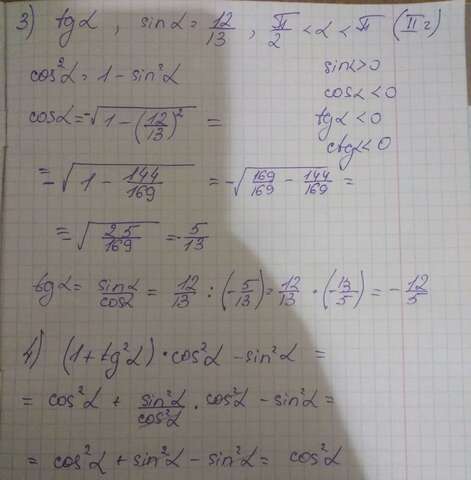 3) tgα, sinα = 12/13, π/2 < α < π (II г)
cos²α = 1 - sin²α
sinα > 0
cosα < 0
tgα < 0
ctgα < 0
cosα = -√(1 - (12/13)²) =
= -√(1 - 144/169) = -√(169/169 - 144/169) =
= -√(25/169) = -5/13
tgα = sinα/cosα = 12/13 : (-5/13) = 12/13 · (-13/5) = -12/5
4) (1 + tg²α) · cos²α - sin²α =
= cos²α + sin²α/cos²α · cos²α - sin²α =
= cos²α + sin²α - sin²α = cos²α